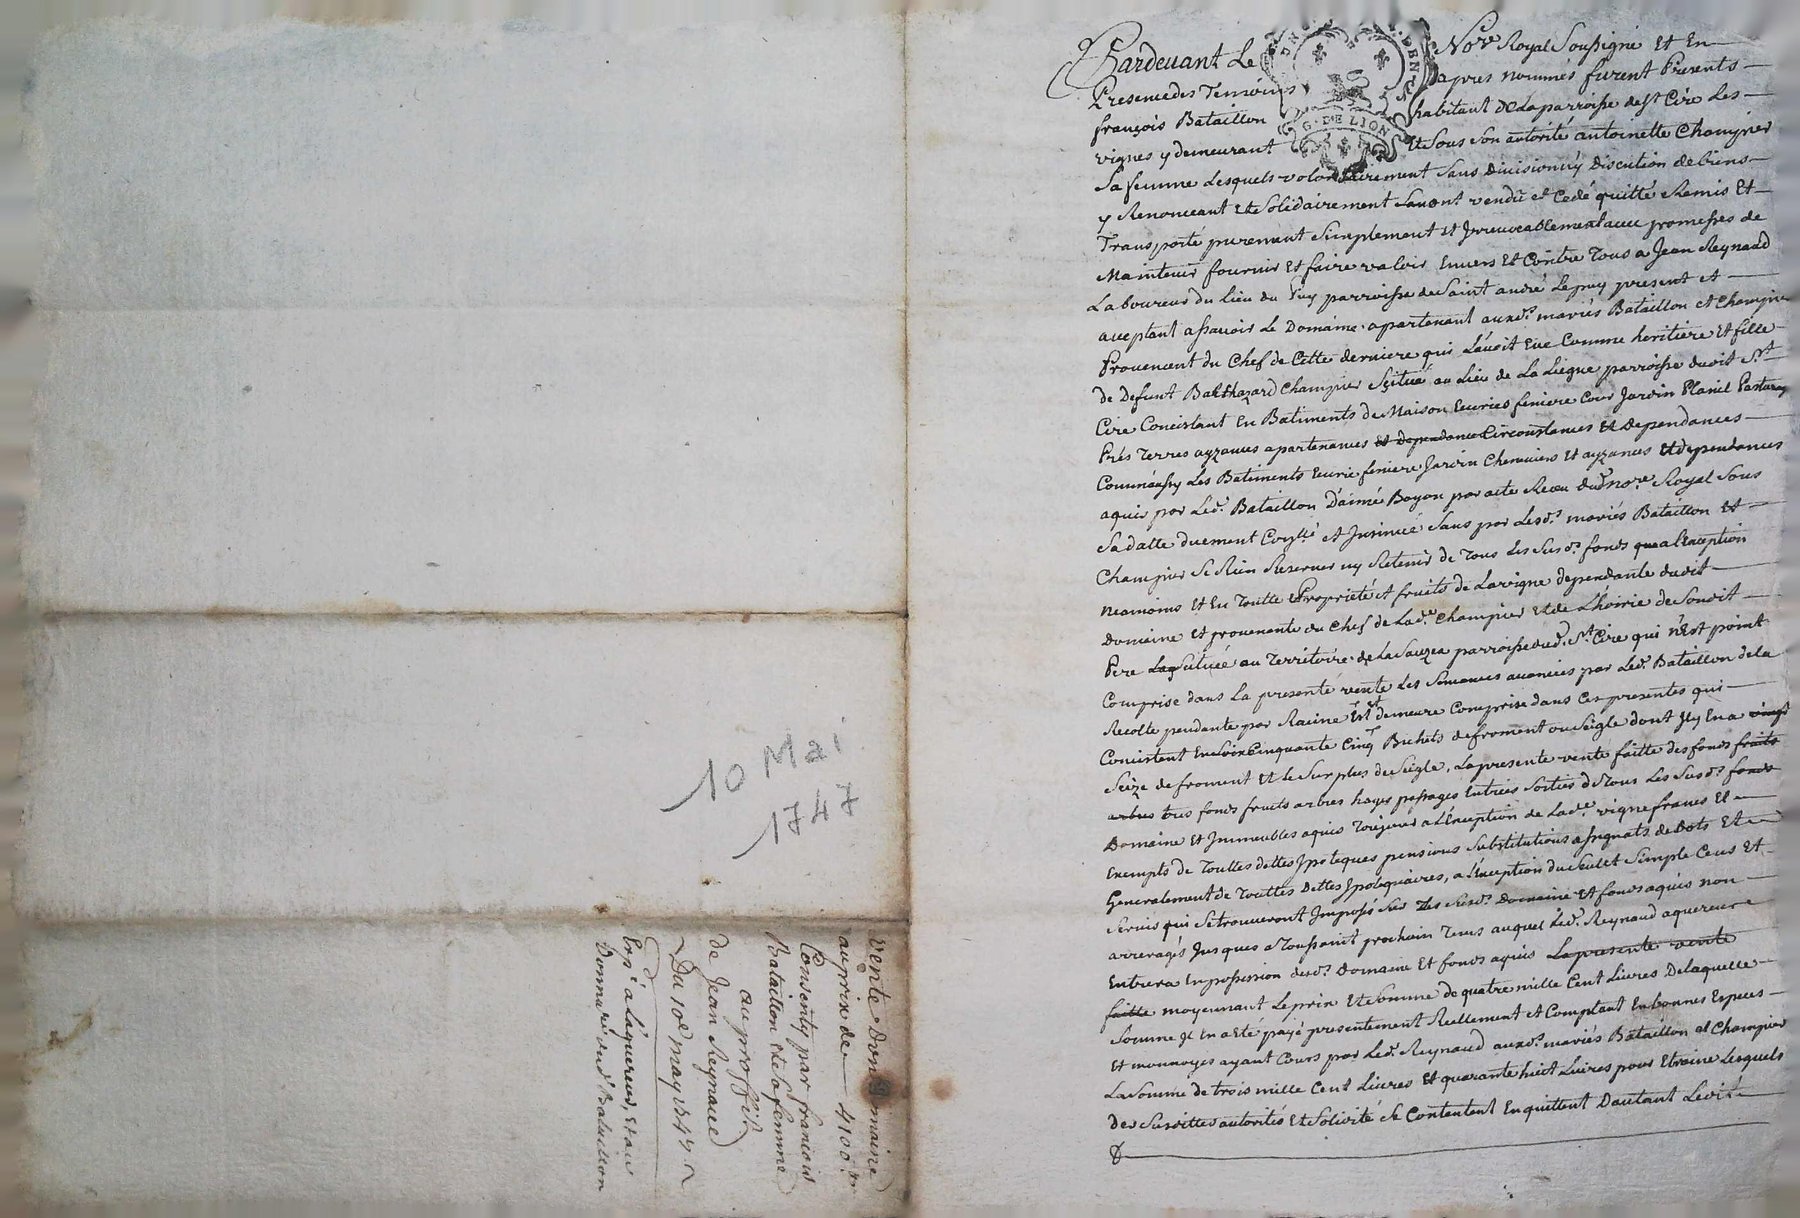 10 Mai
1747
vente d'un domaine
au prix de 4100ᵗᵗ
Consenty par francois
Bataillon et sa femme
au proffit
de Jean Reynaud
Du 10e may 1747
Exp. a L'aquereur, et au
Pardevant Le Nore Royal Soussigné Et En
Presence des Temoins apres nommés furent Presents
françois Bataillon habitant de La parroisse de st Cire Les
vignes y demeurant Et Sous Son autorité antoinette Champier
Sa femme Lesquels volontairement Sans Division ny Discution de biens
y Renonceant Et Solidairement vendû et Cedé quitté Remis Et
Transporté purement Simplement et Jrrevocablement avec promesses de
Maintenir fournir Et faire valoir Envers Et Contre Tous a Jean Reynaud
Laboureur du Lieu du Puy parroisse de Saint andré Le puy present Et
aceptant assavoir Le Domaine apartenant auxd. mariés Bataillon et Champier
Provenent du Chef de Cette derniere qui L'avoit Eue Comme heritiere Et fille
de Defunt Balthazard Champier Scitué au Lieu de La Liegue parroisse dudit St
Cire Concistant En Batiments de Maison Ecuries feniere Cour Jardin
Prés Terres ayzances apartenances et dependances Circonstances Et dependances
Les Batiments Ecurie feniere Jardin Cheneviers Et ayzances Et dependances
aquis par Led. Bataillon D'aimé Boyon par acte Receu dud. nore Royal Sous
Sa datte duement Et Jnsinué Sans par Lesd. mariés Bataillon Et
Champier Se Rien Reserver ny Retenir de Tous Les Susd. fonds qua L'exeption
neamoins Et En Toutte Propriété et fruits de La vigne dependante dudit
Domaine Et provenante du Chef de Lad.e Champier Et de L'hoirie de Sondit
Pere Scituée au Territoire de La Sauzea parroisse dud. St Cire qui n'Est point
Comprise dans La presente vente Les Semances avancées par Led. Bataillon de la
Recolte pendante par Racine Est demeure Comprise dans Ces presentes qui
Concistent En Cinquante Cinq Bichets de froment ou Seigle dont Jl y En a vingt
Seize de froment Et le Surplus de Seigle, La presente vente faitte des fonds fruits
arbres tres fonds fruits arbres hayes passages Entrées Sorties de Tous Les Susd. fonds
Domaine Et Jmmeubles aquis Toujours a L'exeption de Lad.e vigne francs Et
Exempts de Touttes dettes Jpoteques pensions Substitutions assignats de Dots Et
Generalement de Touttes Dettes Jpotequaires, a L'exeption du Seul et Simple Cens Et
Servis qui Se trouveront Jmposés Sur Les Susd. Domaine Et fonds aquis non
arreragés Jusques a Toussaint prochain Tems auquel Led. Reynaud aquereur
Entrera En possession dud. Domaine Et fonds aquis La presente vente
faitte moyennant Le prix Et Somme de quatre mille Cent Livres De laquelle
Somme Jl En a Eté payé presentement Reellement et Comptant En bonnes Especes
Et monnoyes ayant Cours par Led. Reynaud auxd. mariés Bataillon et Champier
La Somme de trois mille Cent Livres Et quarante huit Livres pour Etraine Lesquels
Des Susdittes autorités Et Solidité Se Contentent En quittent D'autant Ledit